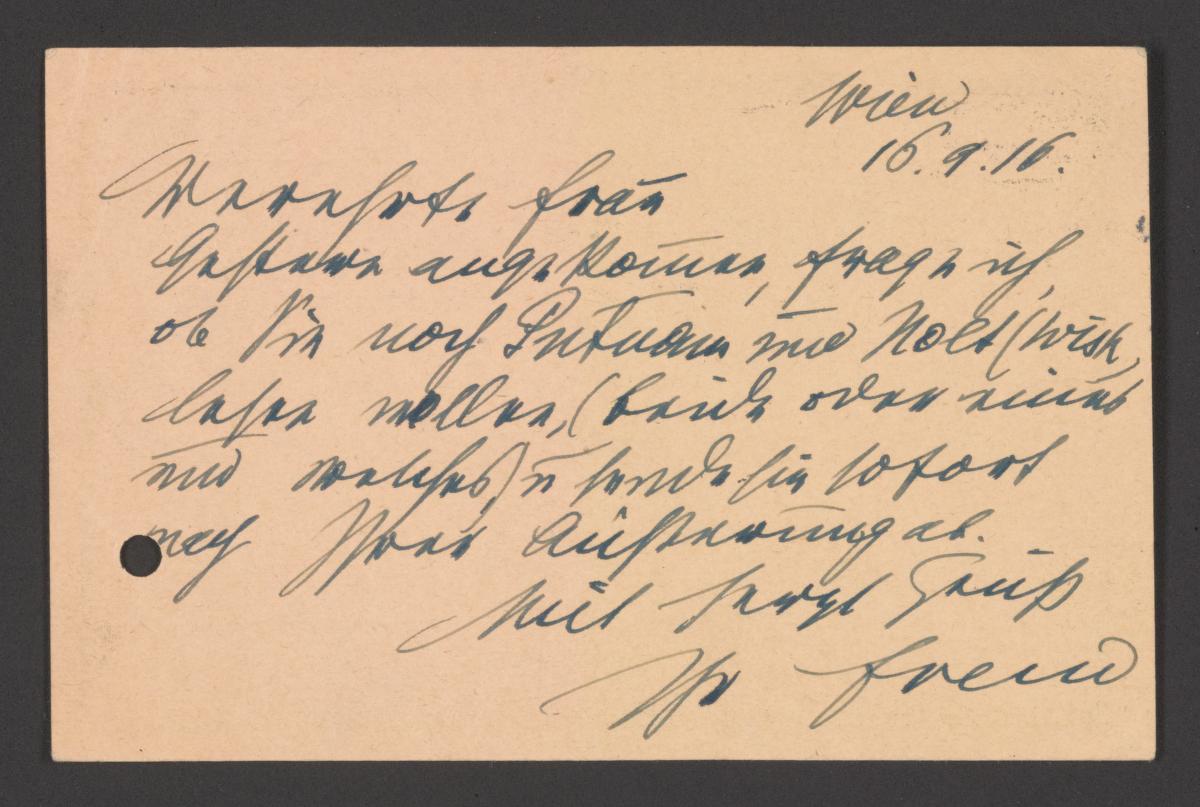 Wien
16.9.16.
Verehrte Frau
Gestern angekommen, frage ich,
ob Sie noch Putnam und Holt (Wish)
lesen wollen, (beide oder eines
und welches) u sende sie sofort
nach Ihrer Äußerung ab.
Mit herzl Gruß
Ihr Freud